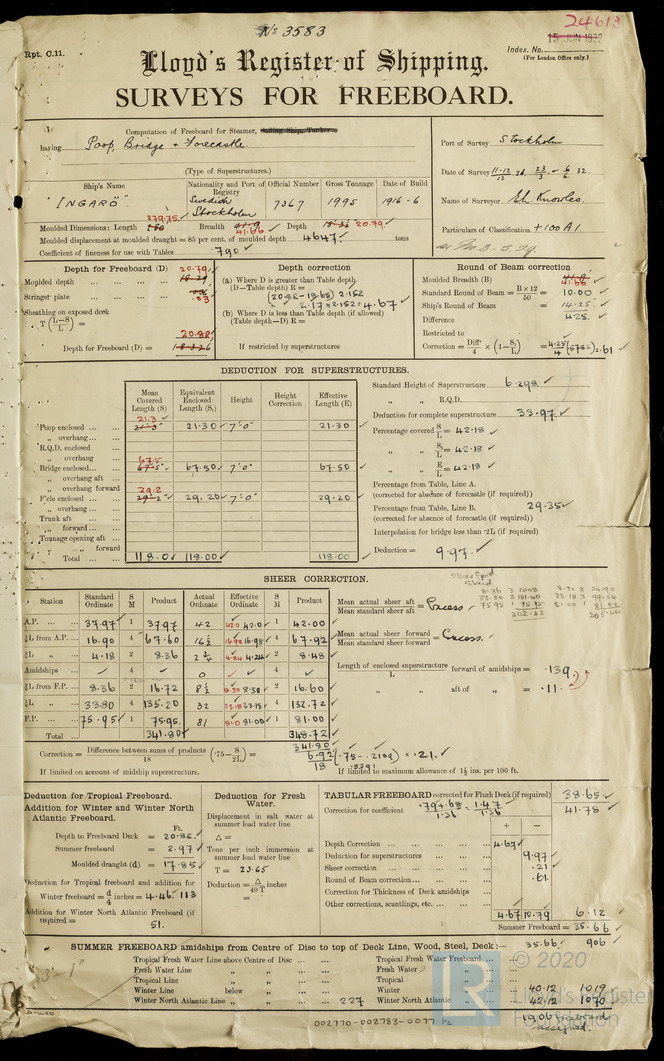 No 3583
24618
15 JUN 1932
Rpt. C.11.
Index. No.
(For London Office only.)
Lloyd's Register of Shipping.
SURVEYS FOR FREEBOARD.
Computation of Freeboard for Steamer, Sailing Ship, Tanker
having Poop, Bridge & Forecastle.
(Type of Superstructures.)
Port of Survey Stockholm
Date of Survey
Name of Surveyor
Particulars of Classification +100 A1.
Ship's Name
Nationality and Port of Registry
Official Number
Gross Tonnage
Date of Build
"INGARÖ"
Swedish
Stockholm
7367
1995
1916-6
279.75
Moulded Dimensions: Length Breadth 41.66 Depth 20.79
Moulded displacement at moulded draught = 85 per cent. of moulded depth 4647 tons
Coefficient of fineness for use with Tables .790
Depth for Freeboard (D)
Moulded depth 20.79
Stringer plate .03
Sheathing on exposed deck
T (L-S/L) =
Depth for Freeboard (D) = 20.82
Depth correction
(a) Where D is greater than Table depth
(D-Table depth) R =
(20.82-18.65) 2.152
= 2.17 × 2.152 = 4.67
(b) Where D is less than Table depth (if allowed)
(Table depth-D) R =
If restricted by superstructures
Round of Beam correction
Moulded Breadth (B) 41.66
Standard Round of Beam = B×12/50 = 10.00
Ship's Round of Beam = 14.25
Difference 4.25
Restricted to
Correction = Diff/4 × (1-S₁/L) = 4.25/4 (.5782) = .61
DEDUCTION FOR SUPERSTRUCTURES.
Mean Covered Length (S)
Equivalent Enclosed Length (S₁)
Height
Height Correction
Effective Length (E)
Poop enclosed 21.3 21.30 7'-0" 21.30
" overhang
R.Q.D. enclosed
" overhang
Bridge enclosed 67.5 67.50 7'-0" 67.50
" overhang aft
" overhang forward
F'cle enclosed 29.2 29.20 7'-0" 29.20
" overhang
Trunk aft
" forward
Tonnage opening aft
" " forward
Total 118.0 118.00 118.00
Standard Height of Superstructure 6.298
" " R.Q.D.
Deduction for complete superstructure 33.97
Percentage covered S/L = 42.18
" " S₁/L = 42.18
" " E/L = 42.18
Percentage from Table, Line A.
(corrected for absence of forecastle (if required))
Percentage from Table, Line B. 29.35
(corrected for absence of forecastle (if required))
Interpolation for bridge less than .2L (if required)
Deduction = 9.97
SHEER CORRECTION.
Station
Standard Ordinate
S M
Product
Actual Ordinate
Effective Ordinate
S M
Product
A.P. 37.97 1 37.97 42 42.0 1 42.00
⅙L from A.P. 16.90 4 67.60 16½ 16.98 4 67.92
⅓L " 4.18 2 8.36 2¾ 4.24 2 8.48
Amidships 4 0 4
⅓L from F.P. 8.36 2 16.72 8½ 8.30 2 16.60
⅙L " 33.80 4 135.20 32 33.18 4 132.72
F.P. 75.95 1 75.95 81 81.00 1 81.00
Total 341.80 348.72
Mean actual sheer aft
Mean standard sheer aft = Excess
Mean actual sheer forward
Mean standard sheer forward = Excess.
Length of enclosed superstructure/L forward of amidships = .139
" " aft of " = .11
Correction = Difference between sums of products/18 (.75 - S/2L) = 6.92/18 (.75-.2109) = .21
341.80
.5391
If limited on account of midship superstructure.
If limited to maximum allowance of 1½ ins. per 100 ft.
Deduction for Tropical Freeboard.
Addition for Winter and Winter North Atlantic Freeboard.
Ft.
Depth to Freeboard Deck = 20.82
Summer freeboard = 2.97
Moulded draught (d) = 17.85
Deduction for Tropical freeboard and addition for
Winter freeboard = d/4 inches = 4.46 113
Addition for Winter North Atlantic Freeboard (if
required =
51.
Deduction for Fresh Water.
Displacement in salt water at summer load water line
Δ =
Tons per inch immersion at summer load water line
T = 23.65
Deduction = Δ/40T inches
=
TABULAR FREEBOARD corrected for Flush Deck (if required) 38.65
Correction for coefficient .79+.68/1.36 = 1.47/1.36 41.78
+ -
Depth Correction 4.67
Deduction for superstructures 9.97
Sheer correction .21
Round of Beam correction .61
Correction for Thickness of Deck amidships
Other corrections, scantlings, etc.
4.67 10.79 6.12
Summer Freeboard = 35.66
SUMMER FREEBOARD amidships from Centre of Disc to top of Deck Line, Wood, Steel, Deck:— 35.66 906
Tropical Fresh Water Line above Centre of Disc
Fresh Water Line " "
Tropical Line " "
Winter Line below "
Winter North Atlantic Line " " 227
Tropical Fresh Water Freeboard
Fresh Water "
Tropical "
Winter " 40.12 1019
Winter North Atlantic " 42.12 1070
1906 freeboard
assigned.
002770-002783-0077 1/2
LR
© 2020
Lloyd's Register
Foundation